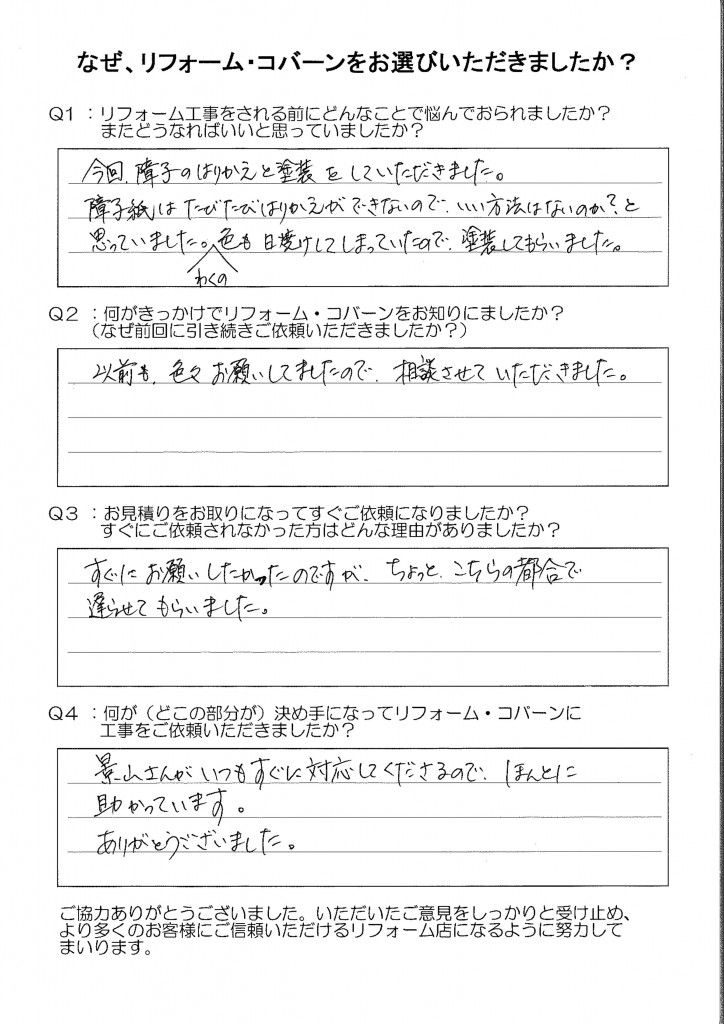 なぜ、リフォーム・コバーンをお選びいただきましたか？
Q1 ：リフォーム工事をされる前にどんなことで悩んでおられましたか？
またどうなればいいと思っていましたか？
今回、障子のはりかえと塗装をしていただきました。
障子紙はたびたびはりかえができないので、いい方法はないのか？と
思っていました。色も日焼けしてしまっていたので、塗装してもらいました。
わくの
Q2 ：何がきっかけでリフォーム・コバーンをお知りにましたか？
（なぜ前回に引き続きご依頼いただきましたか？）
以前も、色々お願いしてましたので、相談させていただきました。
Q3 ：お見積りをお取りになってすぐご依頼になりましたか？
すぐにご依頼されなかった方はどんな理由がありましたか？
すぐにお願いしたかったのですが、ちょっと、こちらの都合で
遅らせてもらいました。
Q4 ：何が（どこの部分が）決め手になってリフォーム・コバーンに
工事をご依頼いただきましたか？
景山さんがいつもすぐに対応してくださるので、ほんとに
助かっています。
ありがとうございました。
ご協力ありがとうございました。いただいたご意見をしっかりと受け止め、
より多くのお客様にご信頼いただけるリフォーム店になるように努力して
まいります。